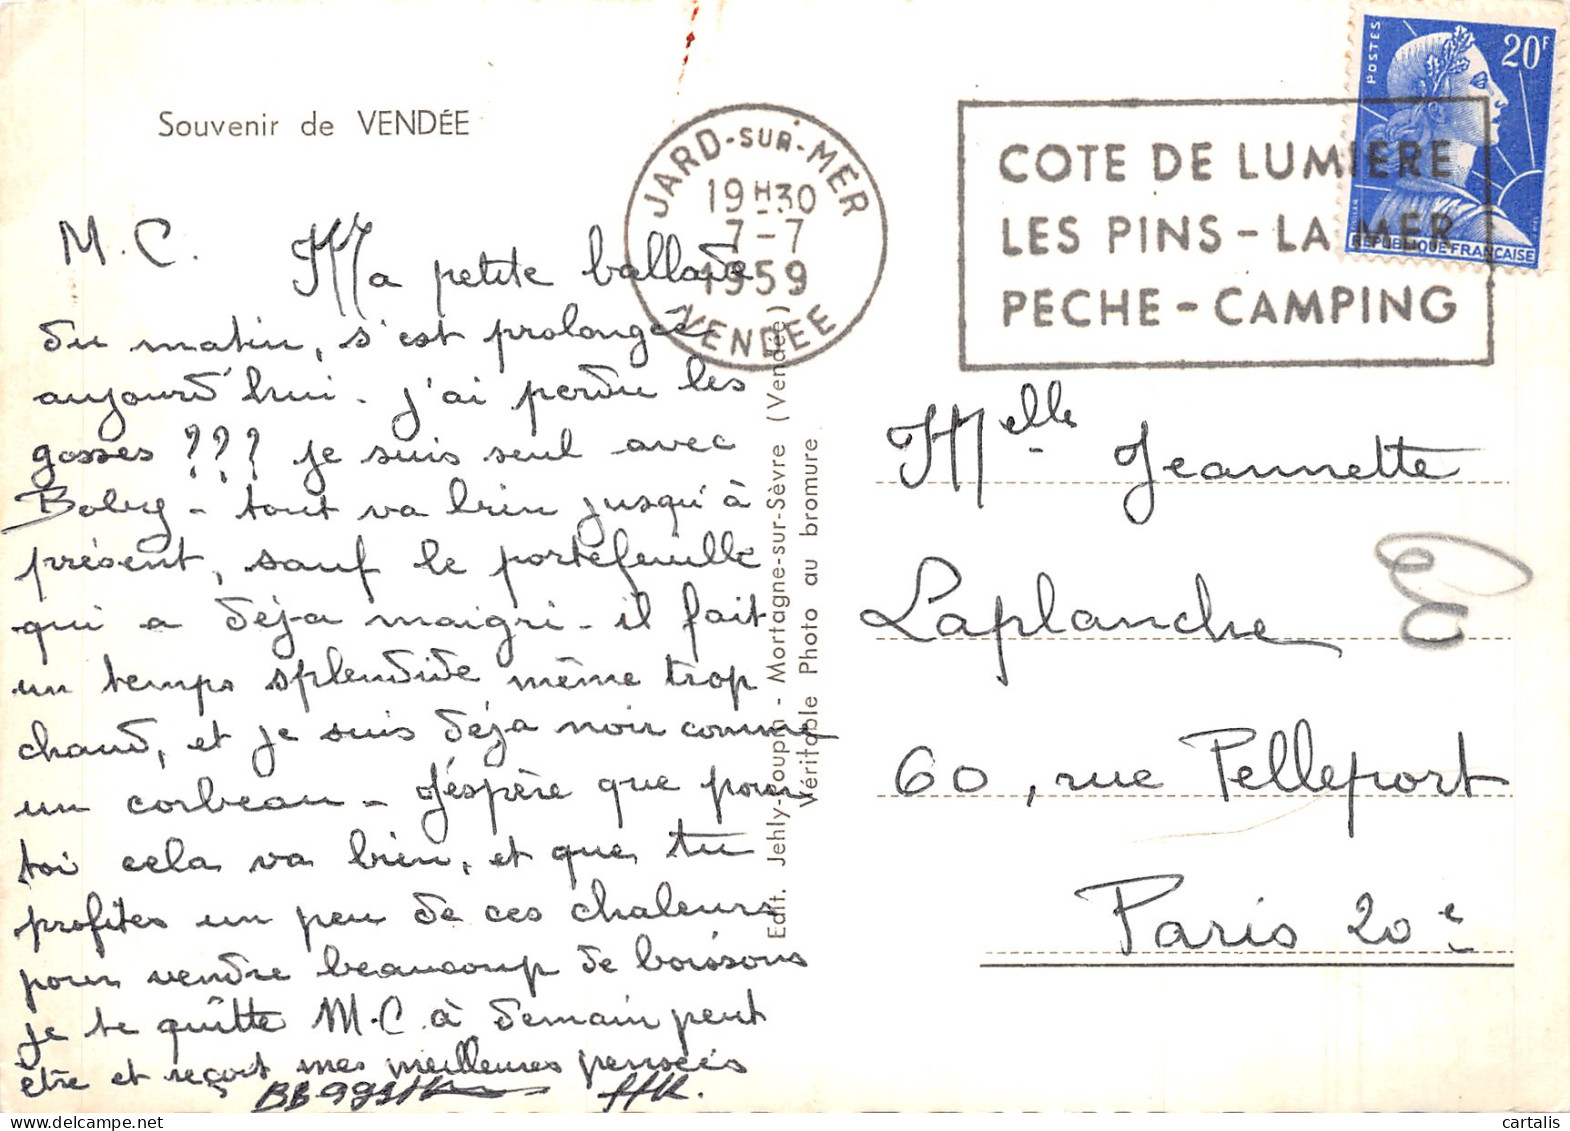 Souvenir de VENDÉE
JARD-SUR-MER
19H30
7-7
1959
VENDEE
COTE DE LUMIERE
LES PINS - LA MER
PECHE - CAMPING
POSTES
20F
REPUBLIQUE FRANÇAISE
M.C. Ma petite ballade
du matin, s'est prolongée
aujourd'hui - j'ai perdu les
gosses ??? je suis seul avec
Boby - tout va bien jusqu'à
présent, sauf le portefeuille
qui a déja maigri - il fait
un temps splendide même trop
chaud, et je suis déja noir comme
un corbeau - J'éspère que pour
toi cela va bien, et que tu
profites un peu de ces chaleurs
pour vendre beaucoup de boissons
je te quitte M.C. à demain peut
être et reçoit mes meilleures pensées
Edit. Jehly-Poupin - Mortagne-sur-Sèvre (Vendée)
Véritable Photo au bromure
Melle Jeannette
Laplanche
60, rue Pelleport
Paris 20e
cartalis